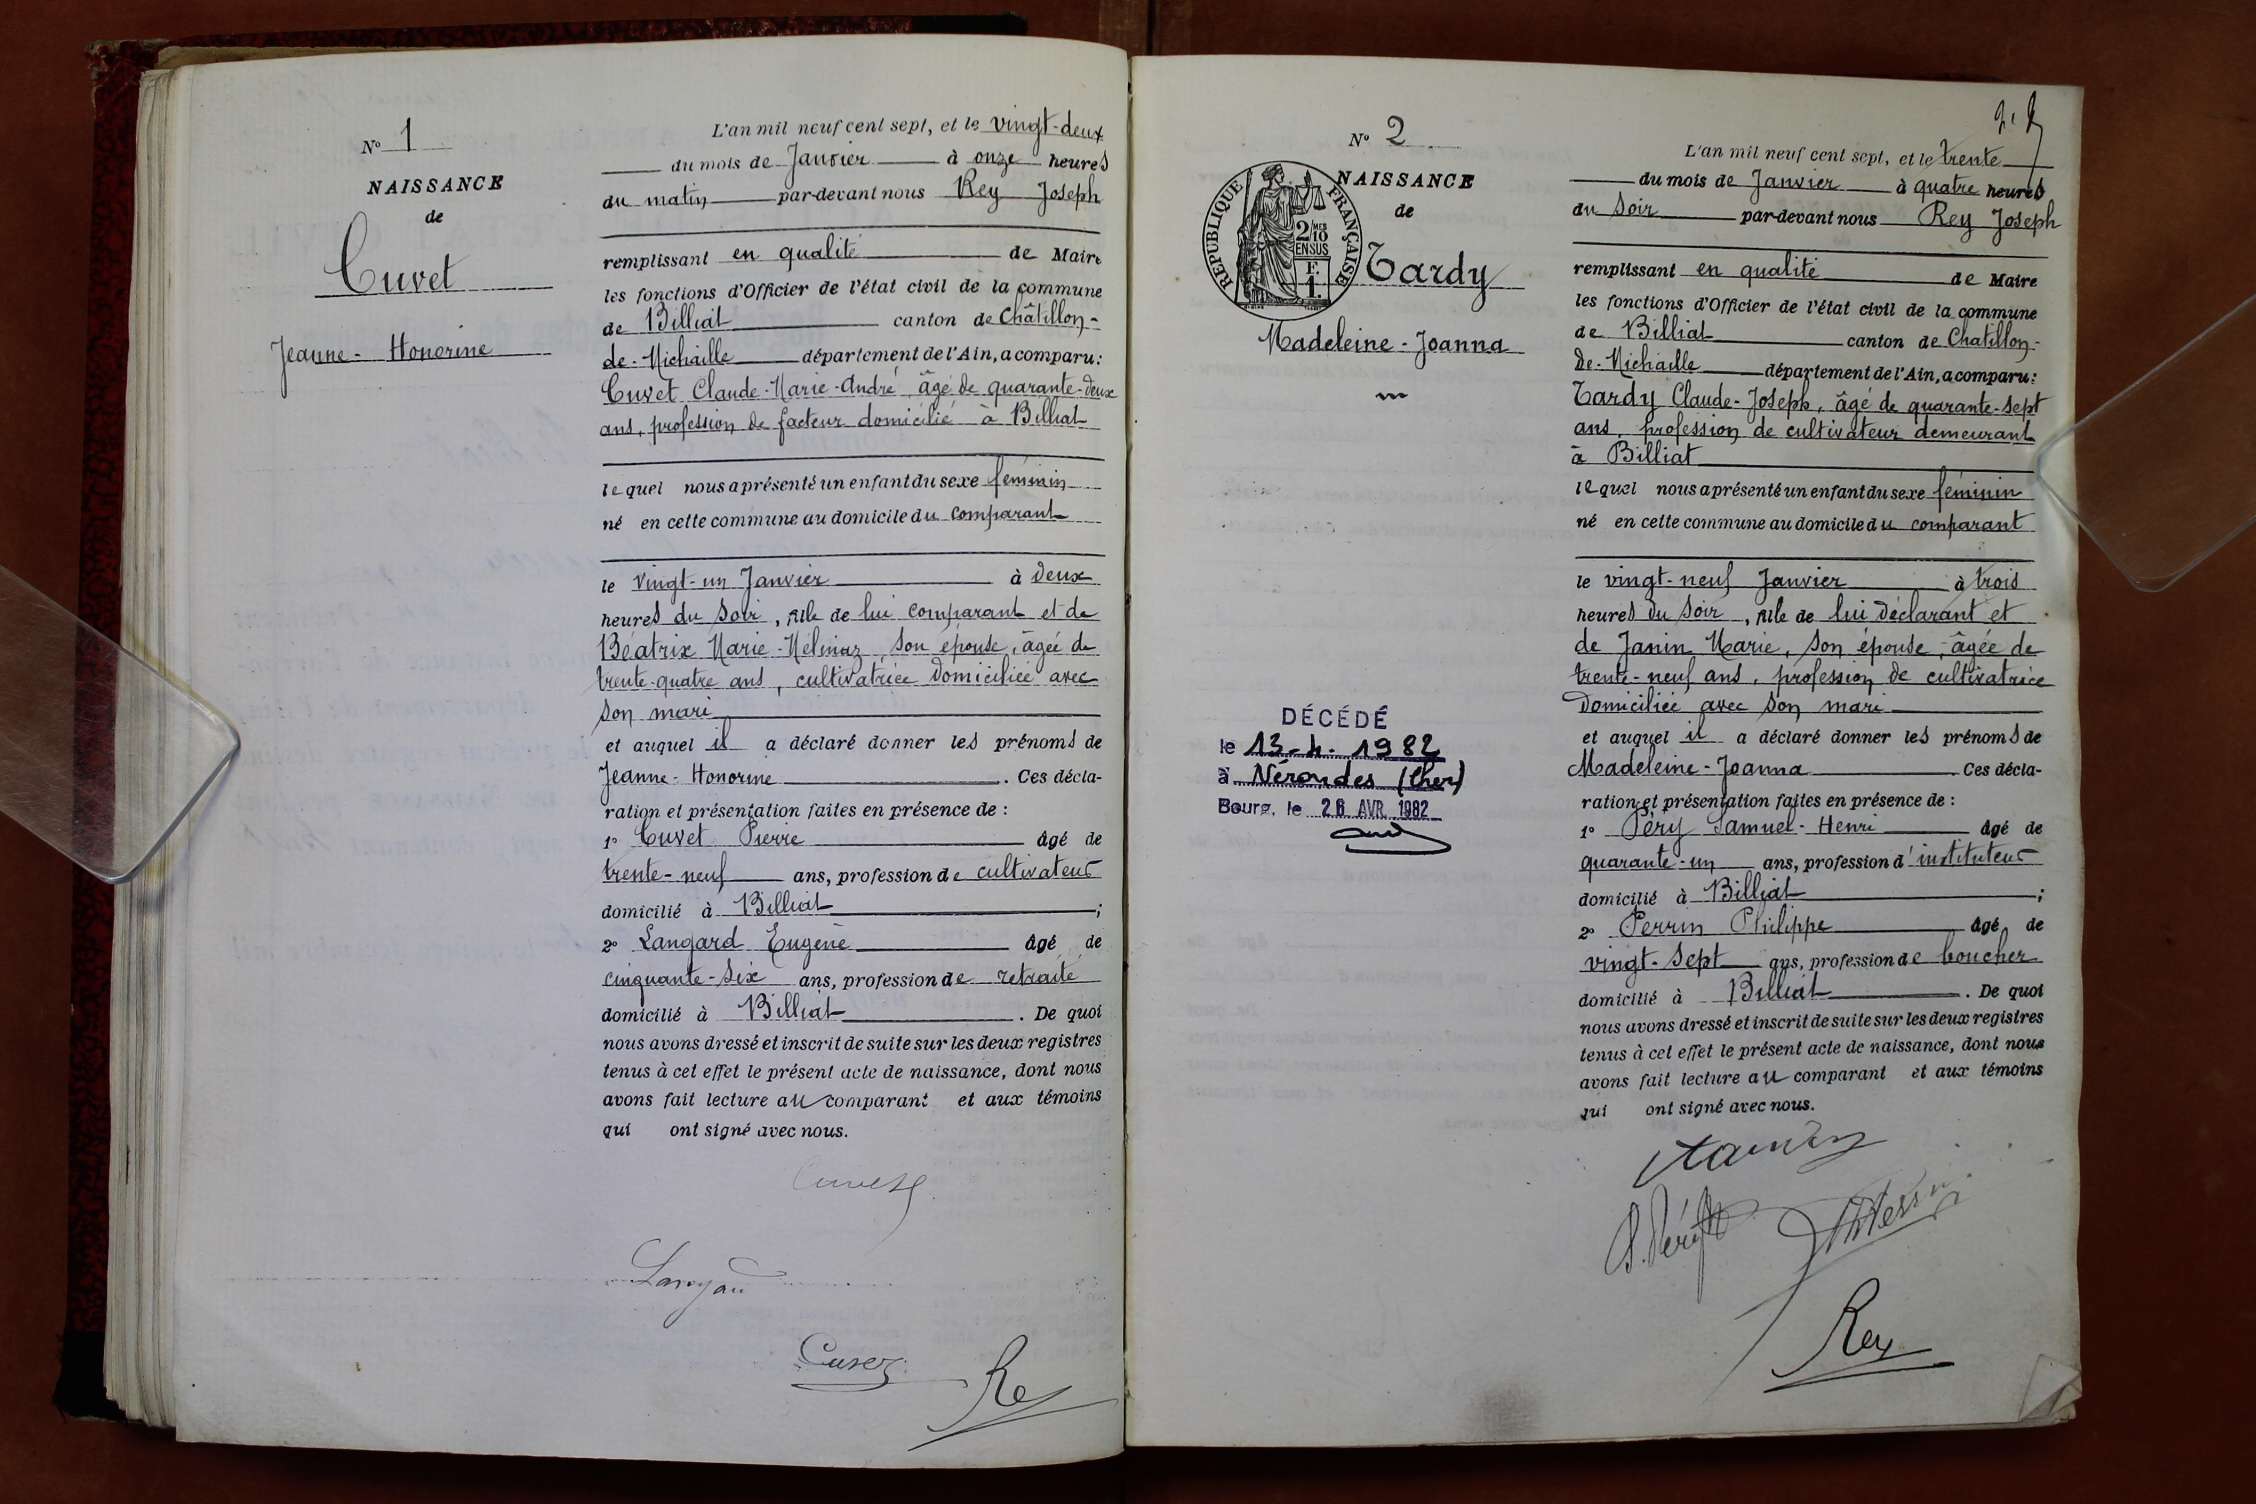 N° 1
NAISSANCE
de
Cuvet
Jeanne-Honorine
L'an mil neuf cent sept, et le vingt-deux
du mois de Janvier à onze heures
du matin par-devant nous Rey Joseph
remplissant en qualité de Maire
les fonctions d'Officier de l'état civil de la commune
de Billiat canton de Châtillon-
de-Michaille département de l'Ain, a comparu:
Cuvet Claude-Marie-André, âgé de quarante-deux
ans, profession de facteur domicilié à Billiat
lequel nous a présenté un enfant du sexe féminin
né en cette commune au domicile du comparant
le vingt-un Janvier à deux
heures du soir, fille de lui comparant et de
Béatrix Marie-Mélinaz, son épouse, âgée de
trente-quatre ans, cultivatrice domiciliée avec
son mari
et auquel il a déclaré donner les prénoms de
Jeanne-Honorine. Ces décla-
ration et présentation faites en présence de :
1° Cuvet Pierre âgé de
trente-neuf ans, profession de cultivateur
domicilié à Billiat ;
2° Langard Eugène âgé de
cinquante-six ans, profession de retraité
domicilié à Billiat. De quoi
nous avons dressé et inscrit de suite sur les deux registres
tenus à cet effet le présent acte de naissance, dont nous
avons fait lecture au comparant et aux témoins
qui ont signé avec nous.
Cuvet
Langard
Cuvet
Rey
N° 2
NAISSANCE
de
REPUBLIQUE FRANÇAISE
2/10
EN SUS
F.
1.
Tardy
Madeleine-Joanna
DÉCÉDÉ
le 13-4-1982
à Nérondes (Cher)
Bourg, le 26 AVR. 1982
L'an mil neuf cent sept, et le trente
du mois de Janvier à quatre heures
du soir par-devant nous Rey Joseph
remplissant en qualité de Maire
les fonctions d'Officier de l'état civil de la commune
de Billiat canton de Chatillon-
de-Michaille département de l'Ain, a comparu:
Tardy Claude-Joseph, âgé de quarante-sept
ans, profession de cultivateur demeurant
à Billiat
lequel nous a présenté un enfant du sexe féminin
né en cette commune au domicile du comparant
le vingt-neuf Janvier à trois
heures du soir, fille de lui déclarant et
de Janin Marie, son épouse, âgée de
trente-neuf ans, profession de cultivatrice
domiciliée avec son mari
et auquel il a déclaré donner les prénoms de
Madeleine-Joanna. Ces décla-
ration et présentation faites en présence de :
1° Péry Samuel-Henri âgé de
quarante-un ans, profession d'instituteur
domicilié à Billiat ;
2° Perrin Philippe âgé de
vingt-sept ans, profession de boucher
domicilié à Billiat. De quoi
nous avons dressé et inscrit de suite sur les deux registres
tenus à cet effet le présent acte de naissance, dont nous
avons fait lecture au comparant et aux témoins
qui ont signé avec nous.
Tardy
S. Péry
Perrin
Rey